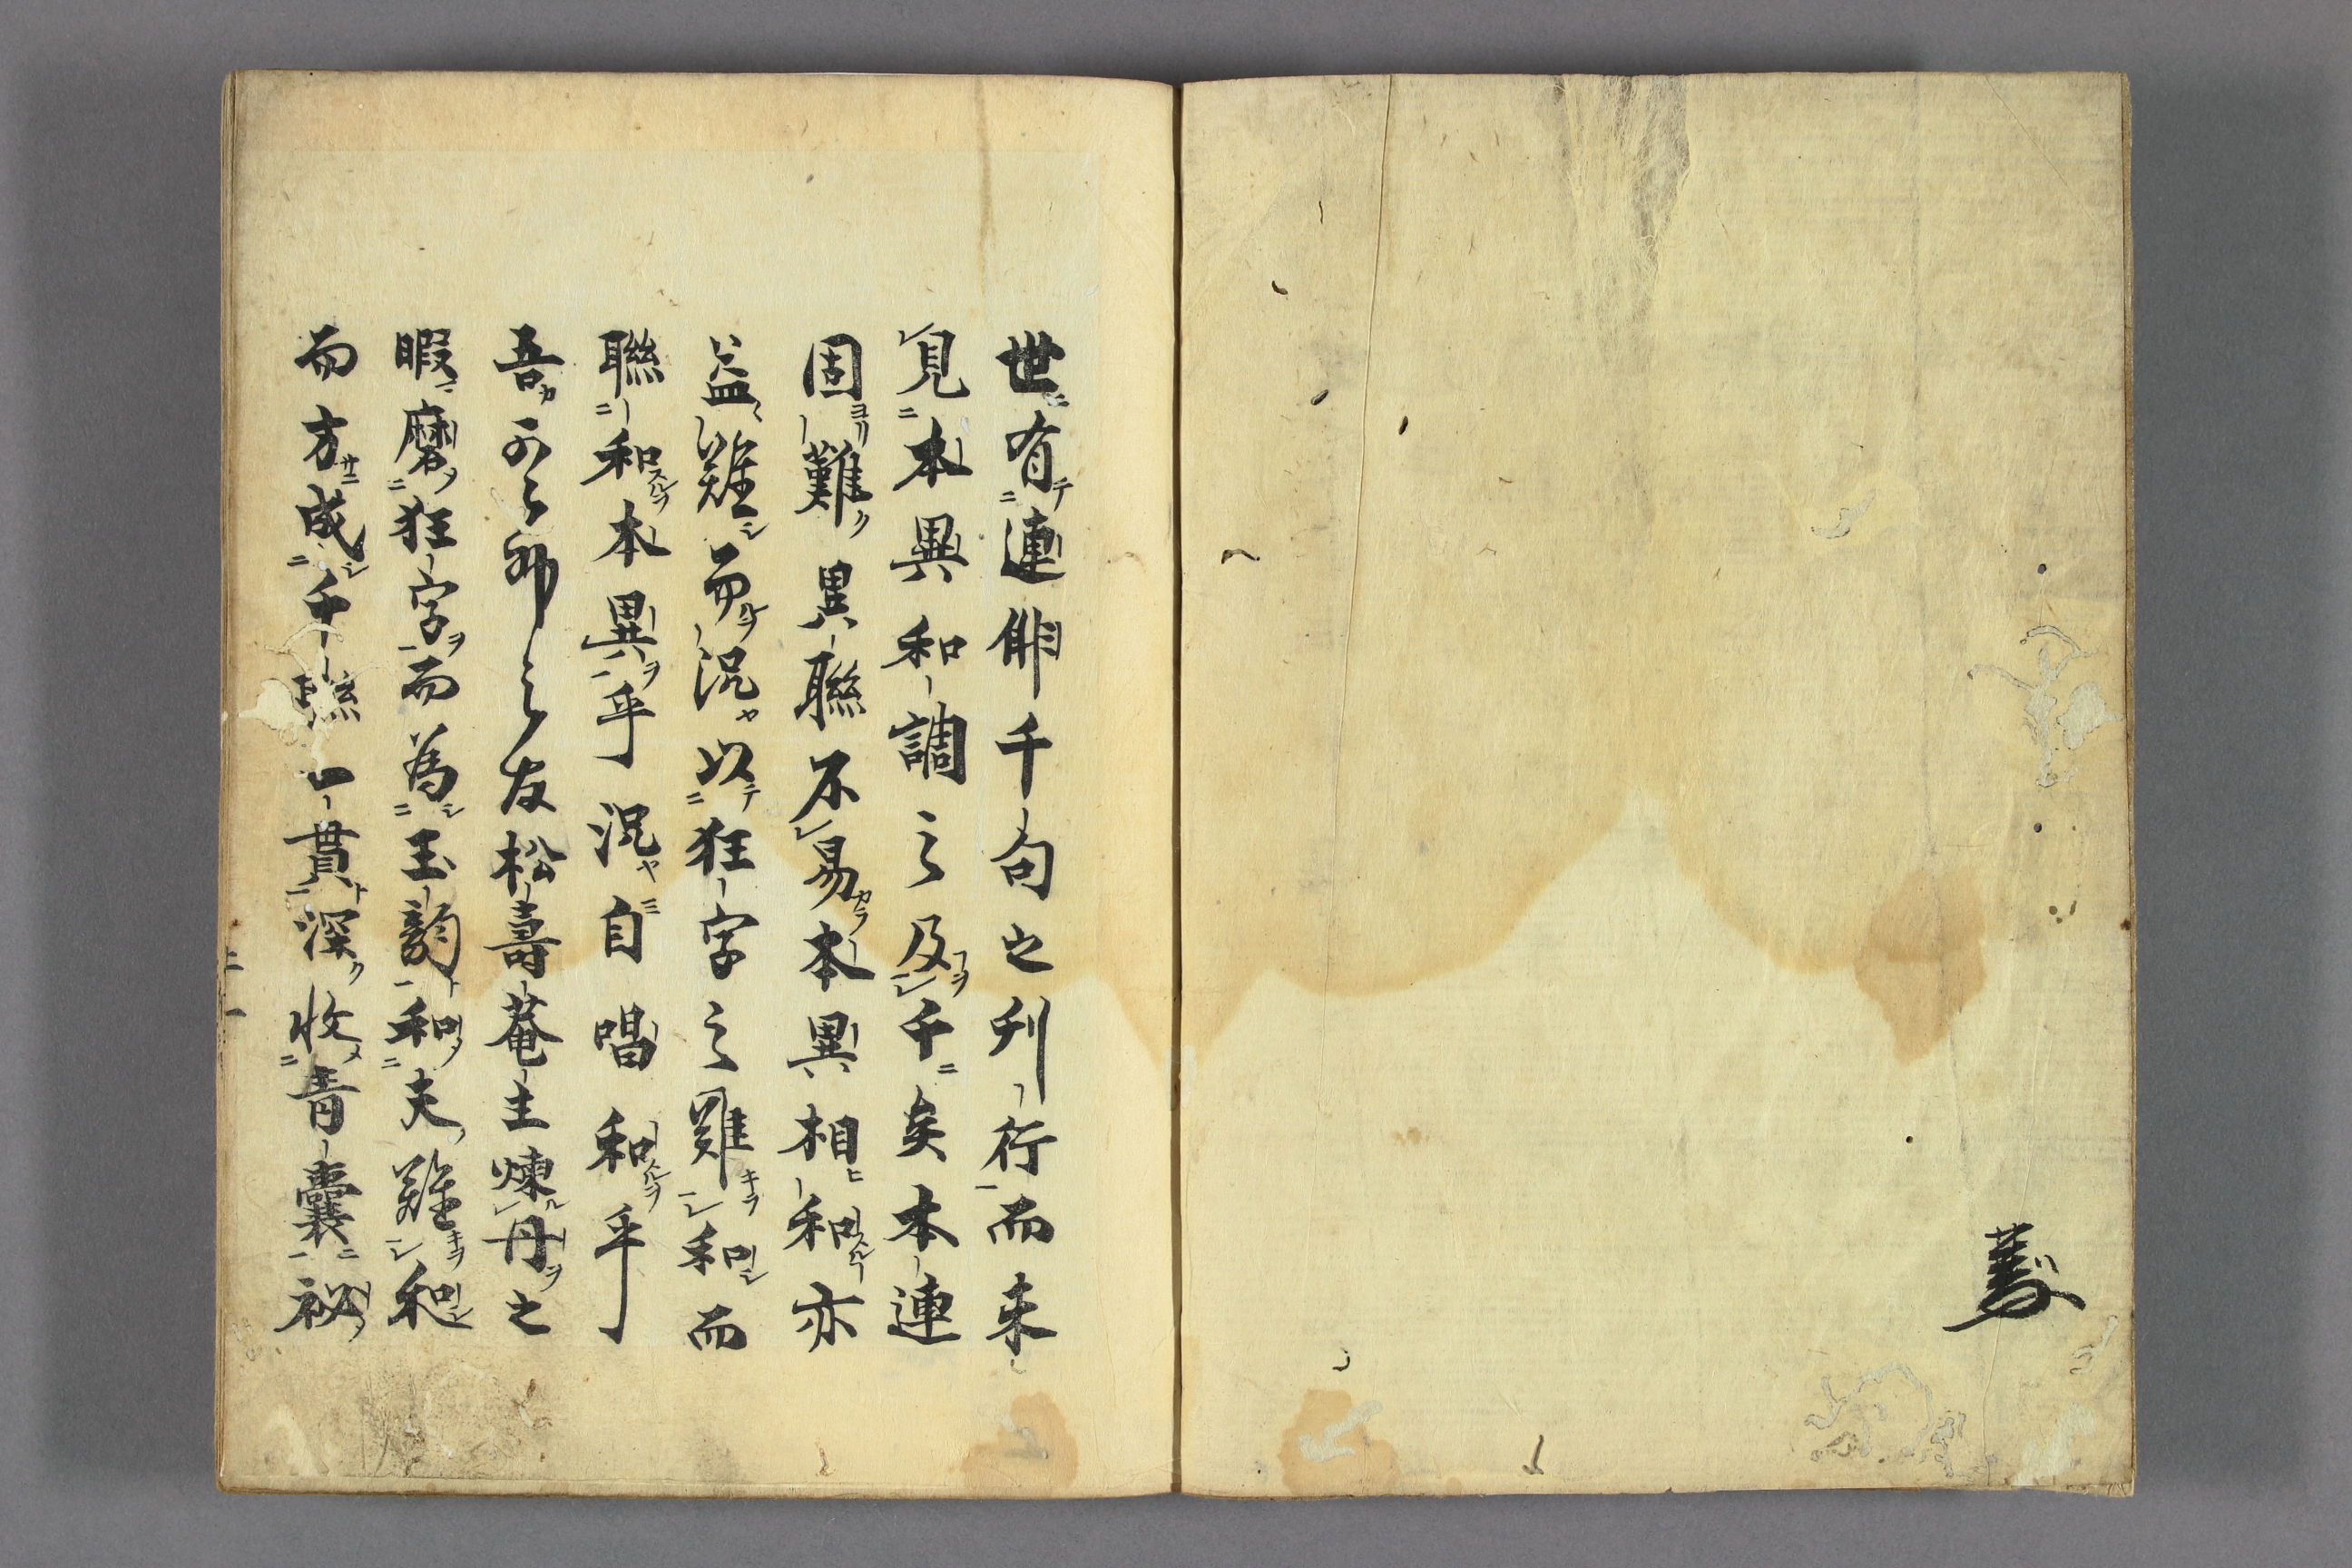 世有連俳千句之刋行而未
見本異和調之及千矣本連
固難異聯不易本異相和亦
益難而況以狂字之難和而
聯和本異乎況自唱和乎
吾之友松壽菴主煉丹之
暇磨狂字而為玉韵和夫難和
而方成千聯一貫深收青囊祕